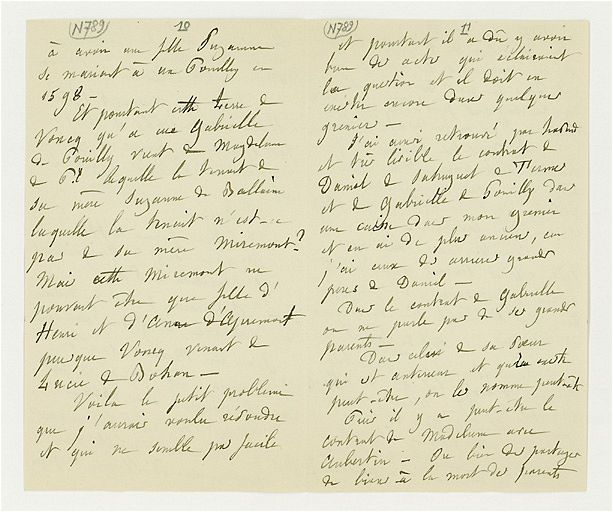 N789 10
à avoir une fille Suzanne
se mariant à un Pouilly en
1598 -
Et pourtant cette terre de
Voncq qu'a eue Gabrielle
de Pouilly vient de Magdelaine
de P.lly laquelle la tenait de
sa mère Suzanne de Ballaine
laquelle la tenait n'est-ce
pas de sa mère Miremont?
Mais cette Miremont ne
pouvait être que fille d'
Henri et d'Anne d'Apremont
puisque Voncq venait de
Lucie de Bohan -
Voilà le petit problème
que j'aurais voulu résoudre
et qui ne semble pas facile
N789 11
Et pourtant il a dû y avoir
bien des actes qui éclairaient
la question et il doit en
exister encore dans quelque
grenier -
J'ai aussi retrouvé, par hasard
et très lisible, le contrat de
Daniel de
et de Gabrielle de Pouilly dans
une caisse dans mon grenier
et en ai de plus anciens, car
j'ai ceux des arrière grands
pères de Daniel -
Dans le contrat de Gabrielle
on ne parle pas de ses grands
parents -
Dans celui de sa soeur
qui est antérieur et qui existe
peut-être, on les nomme peut-être
Puis il y a peut-être le
contrat de Madeleine avec
Aubertin - Ou bien des partages
de biens à la mort des parents